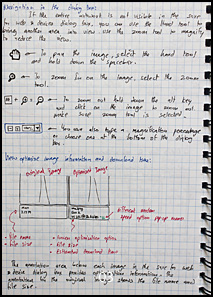 Navigation in the dialog box:
If the entire artwork is not visible in the save
for web & devices dialog box, you can use the hand tool to
bring another area into view use the zoom tool to magnify
to reduce the view.
→ To pan the image, select the hand tool
and hold down the spacebar.
→ To zoom in on the image, select the zoom
tool.
→ To zoom out hold down the alt key
click on the image to zoom out
make sure zoom tool is selected.
→ You can also type a magnification percentage
choose one at the bottom of the dialog
box.
View optimize image information and download time:
Original Image
Optimized Image
different modem
speed option pop up menus
→ file name
→ file size
→ current optimization option
→ file size
→ Estimated download time
The annotation area below each image in the save for web
& device dialog box provides optimization information.
annotation for the original image shows the file name and
file size.